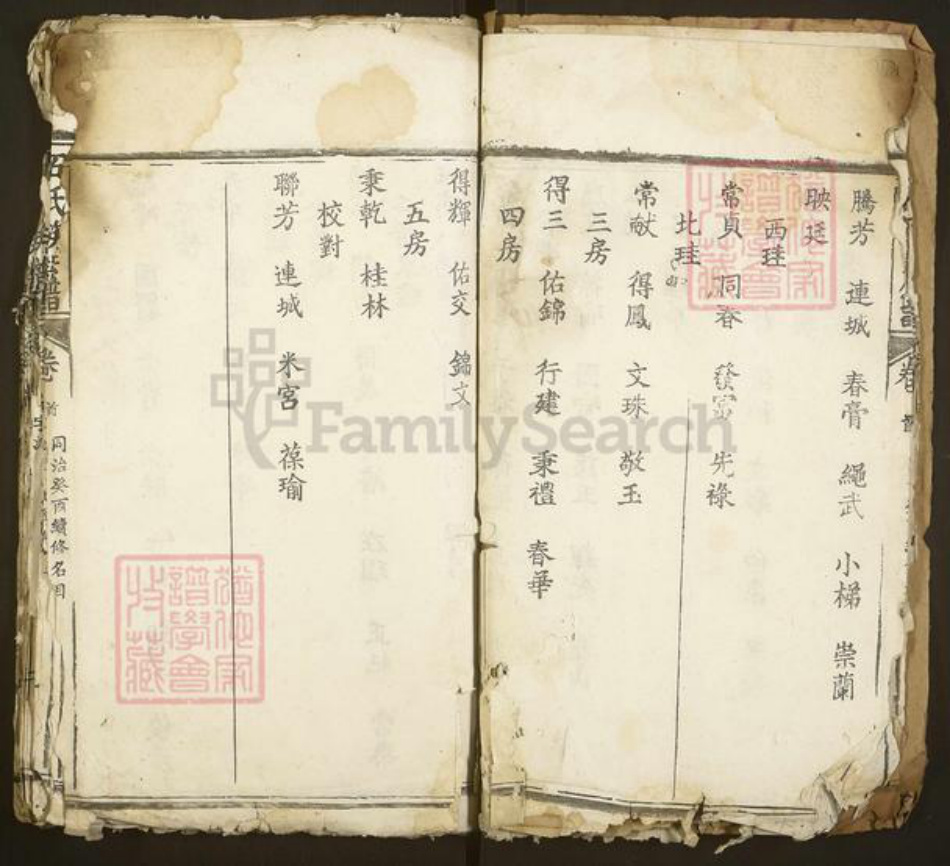 騰芳 連城 春膏 繩武 小梯 崇蘭
映廷
西珪
常貞 同春 發富 先祿
北珪
常献 得鳳 文珠 敬玉
三房
得三 佑錦 行建 秉禮 春華
四房
得輝 佑交 錦文
五房
秉乾 桂林
校對
聯芳 連城 米宮 葆瑜
同治癸酉續修名目
FamilySearch